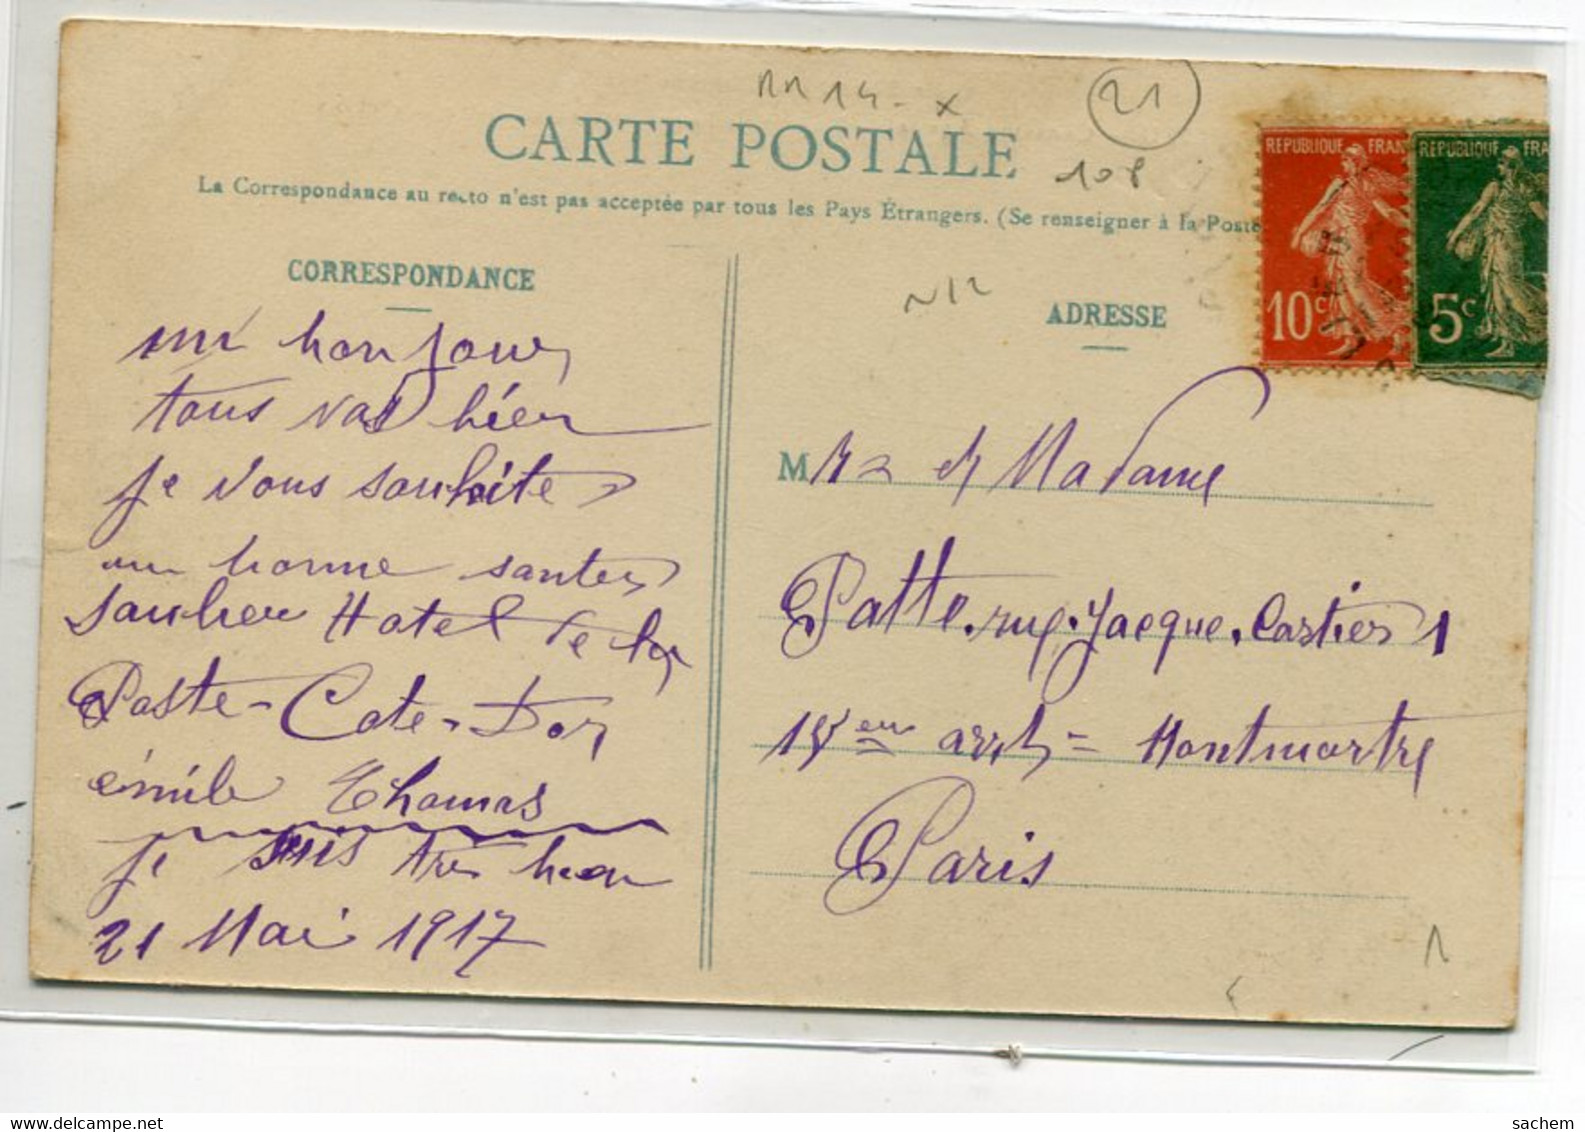 nn 14 - x
21
CARTE POSTALE
108
La Correspondance au recto n'est pas acceptée par tous les Pays Étrangers. (Se renseigner à la Poste
REPUBLIQUE FRAN
10c
REPUBLIQUE FRA
5c
CORRESPONDANCE
un bonjour
tous va bien
je vous souhite
un bonne santer
Saulieu Hotel de la
Poste - Cote - Dor
émile Thomas
je suis très bien
21 Mai 1917
N12
ADRESSE
M Mr et Madame
Patte. rue. Jacque. Cartier 1
18em arrt = Montmartre
Paris
www.delcampe.net
sachem